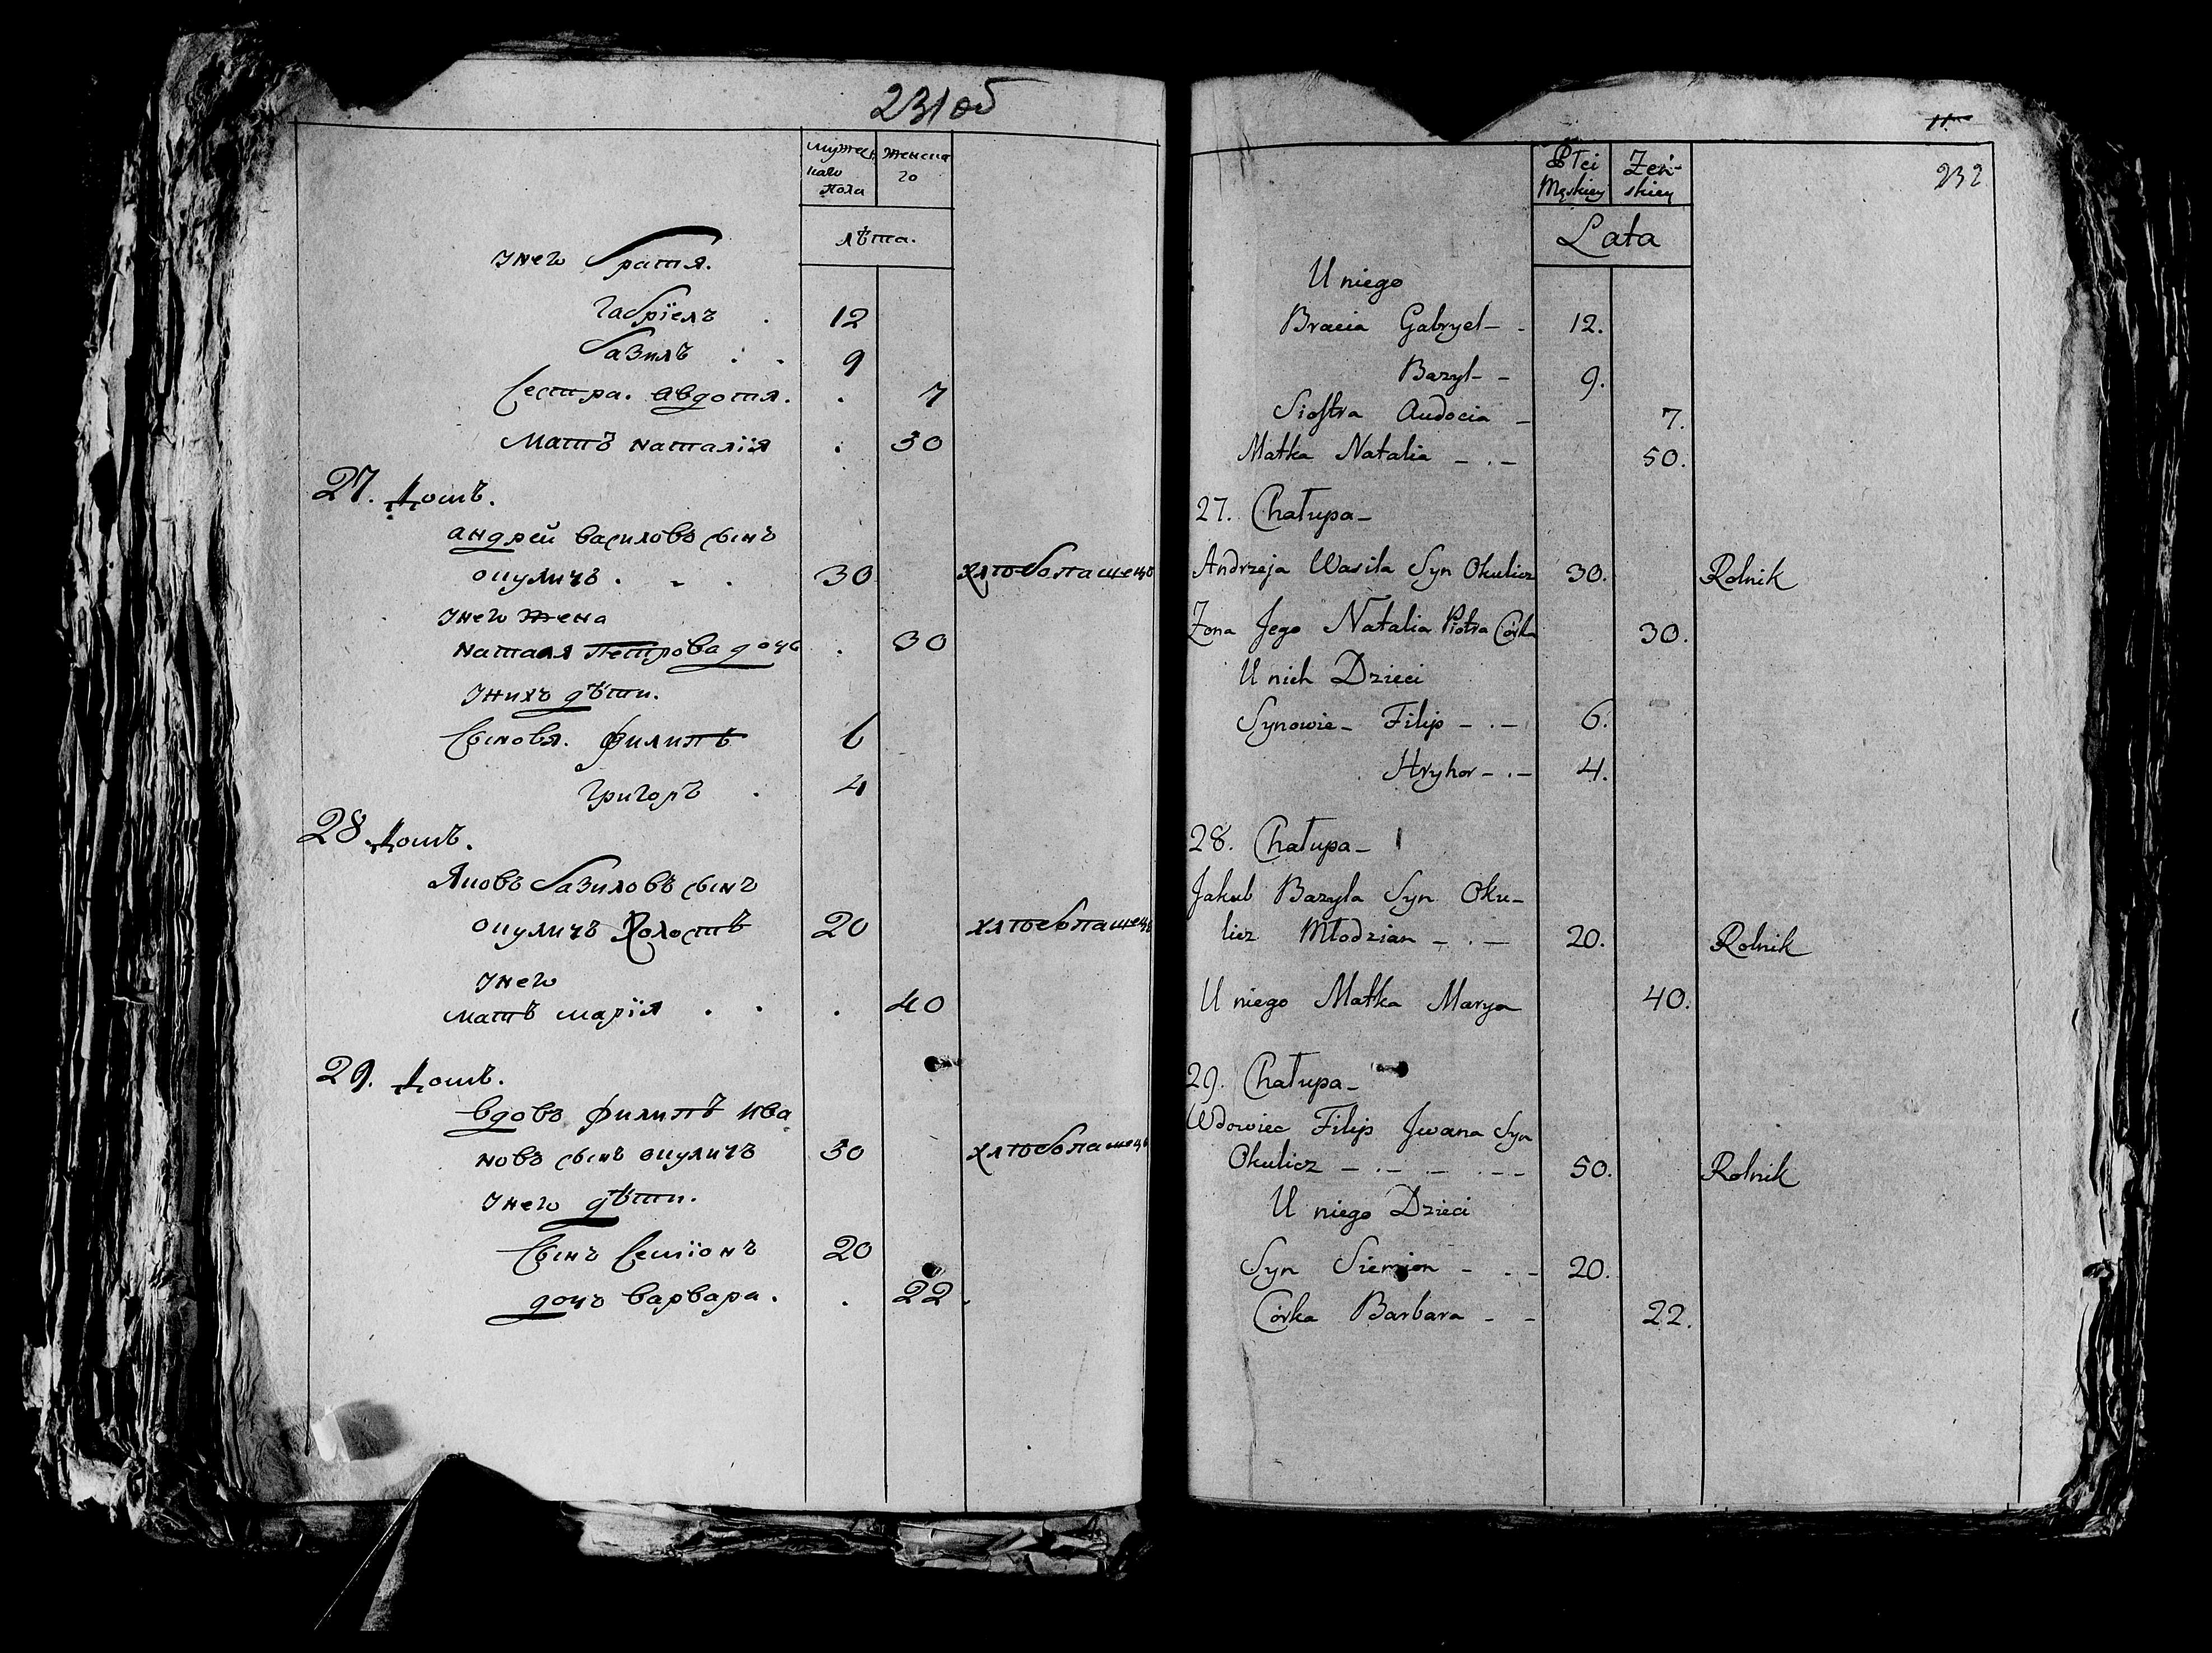 231об
мужес
каго
пола
женска
го
лѣта.
Унего братя.
Габріелъ . 12
базилъ . . 9
Сестра. авдотя. . 7
Матъ наталія . 50
27. Домъ.
андрей василовъ сынъ
окуличъ . - . 30 хлѣбопашецъ
Унего жена
наталя Петрова дочь . 30
Унихъ дѣти.
Сыновя. филипъ 6
Григоръ . 4
28. Домъ.
Яковъ базиловъ сынъ
окуличъ Холостъ 20 хлѣбопашецъ
Унего
матъ марія . . . 40
29. Домъ.
вдовъ филипъ ива
новъ сынъ окуличъ 50 хлѣбопашецъ
Унего дѣти.
Сынъ Семіонъ 20
дочъ варвара. . 22.
11.
232
Płci
Męskiey
Żeń-
skiey
Lata
U niego
Bracia Gabryel - - 12.
Bazyl - - 9.
Siostra Audocia - 7.
Matka Natalia - . - 50.
27. Chałupa -
Andrzeja Wasila Syn Okulicz 30. Rolnik
Żona Jego Natalia Piotra Córka 30.
U nich Dzieci
Synowie - Filip - . - 6.
Hryhor - . - 4.
28. Chałupa -
Jakub Bazyla Syn Oku-
licz Młodzian - . - 20. Rolnik
U niego Matka Marya 40.
29. Chałupa -
Wdowiec Filip Jwana Syn
Okulicz - . - . - . - - 50. Rolnik
U niego Dzieci
Syn Siemion - . - 20.
Córka Barbara - - 22.